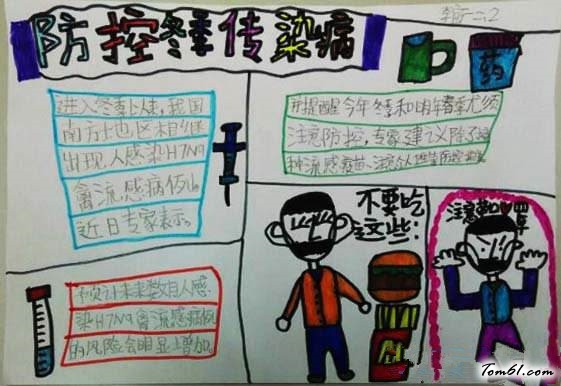 防控冬季传染病
二、2
药
进入冬季以来,我国
南方地区相继
出现人感染H7N9
禽流感病例。
近日专家表示。
并提醒今年冬季和明年春季尤须
注意防控,专家建议除了接
种流感疫苗、注意个人
不要吃
这些:
注意戴口罩
预计未来数月人感
染H7N9禽流感病例
的风险会明显增加。
Tom61.com